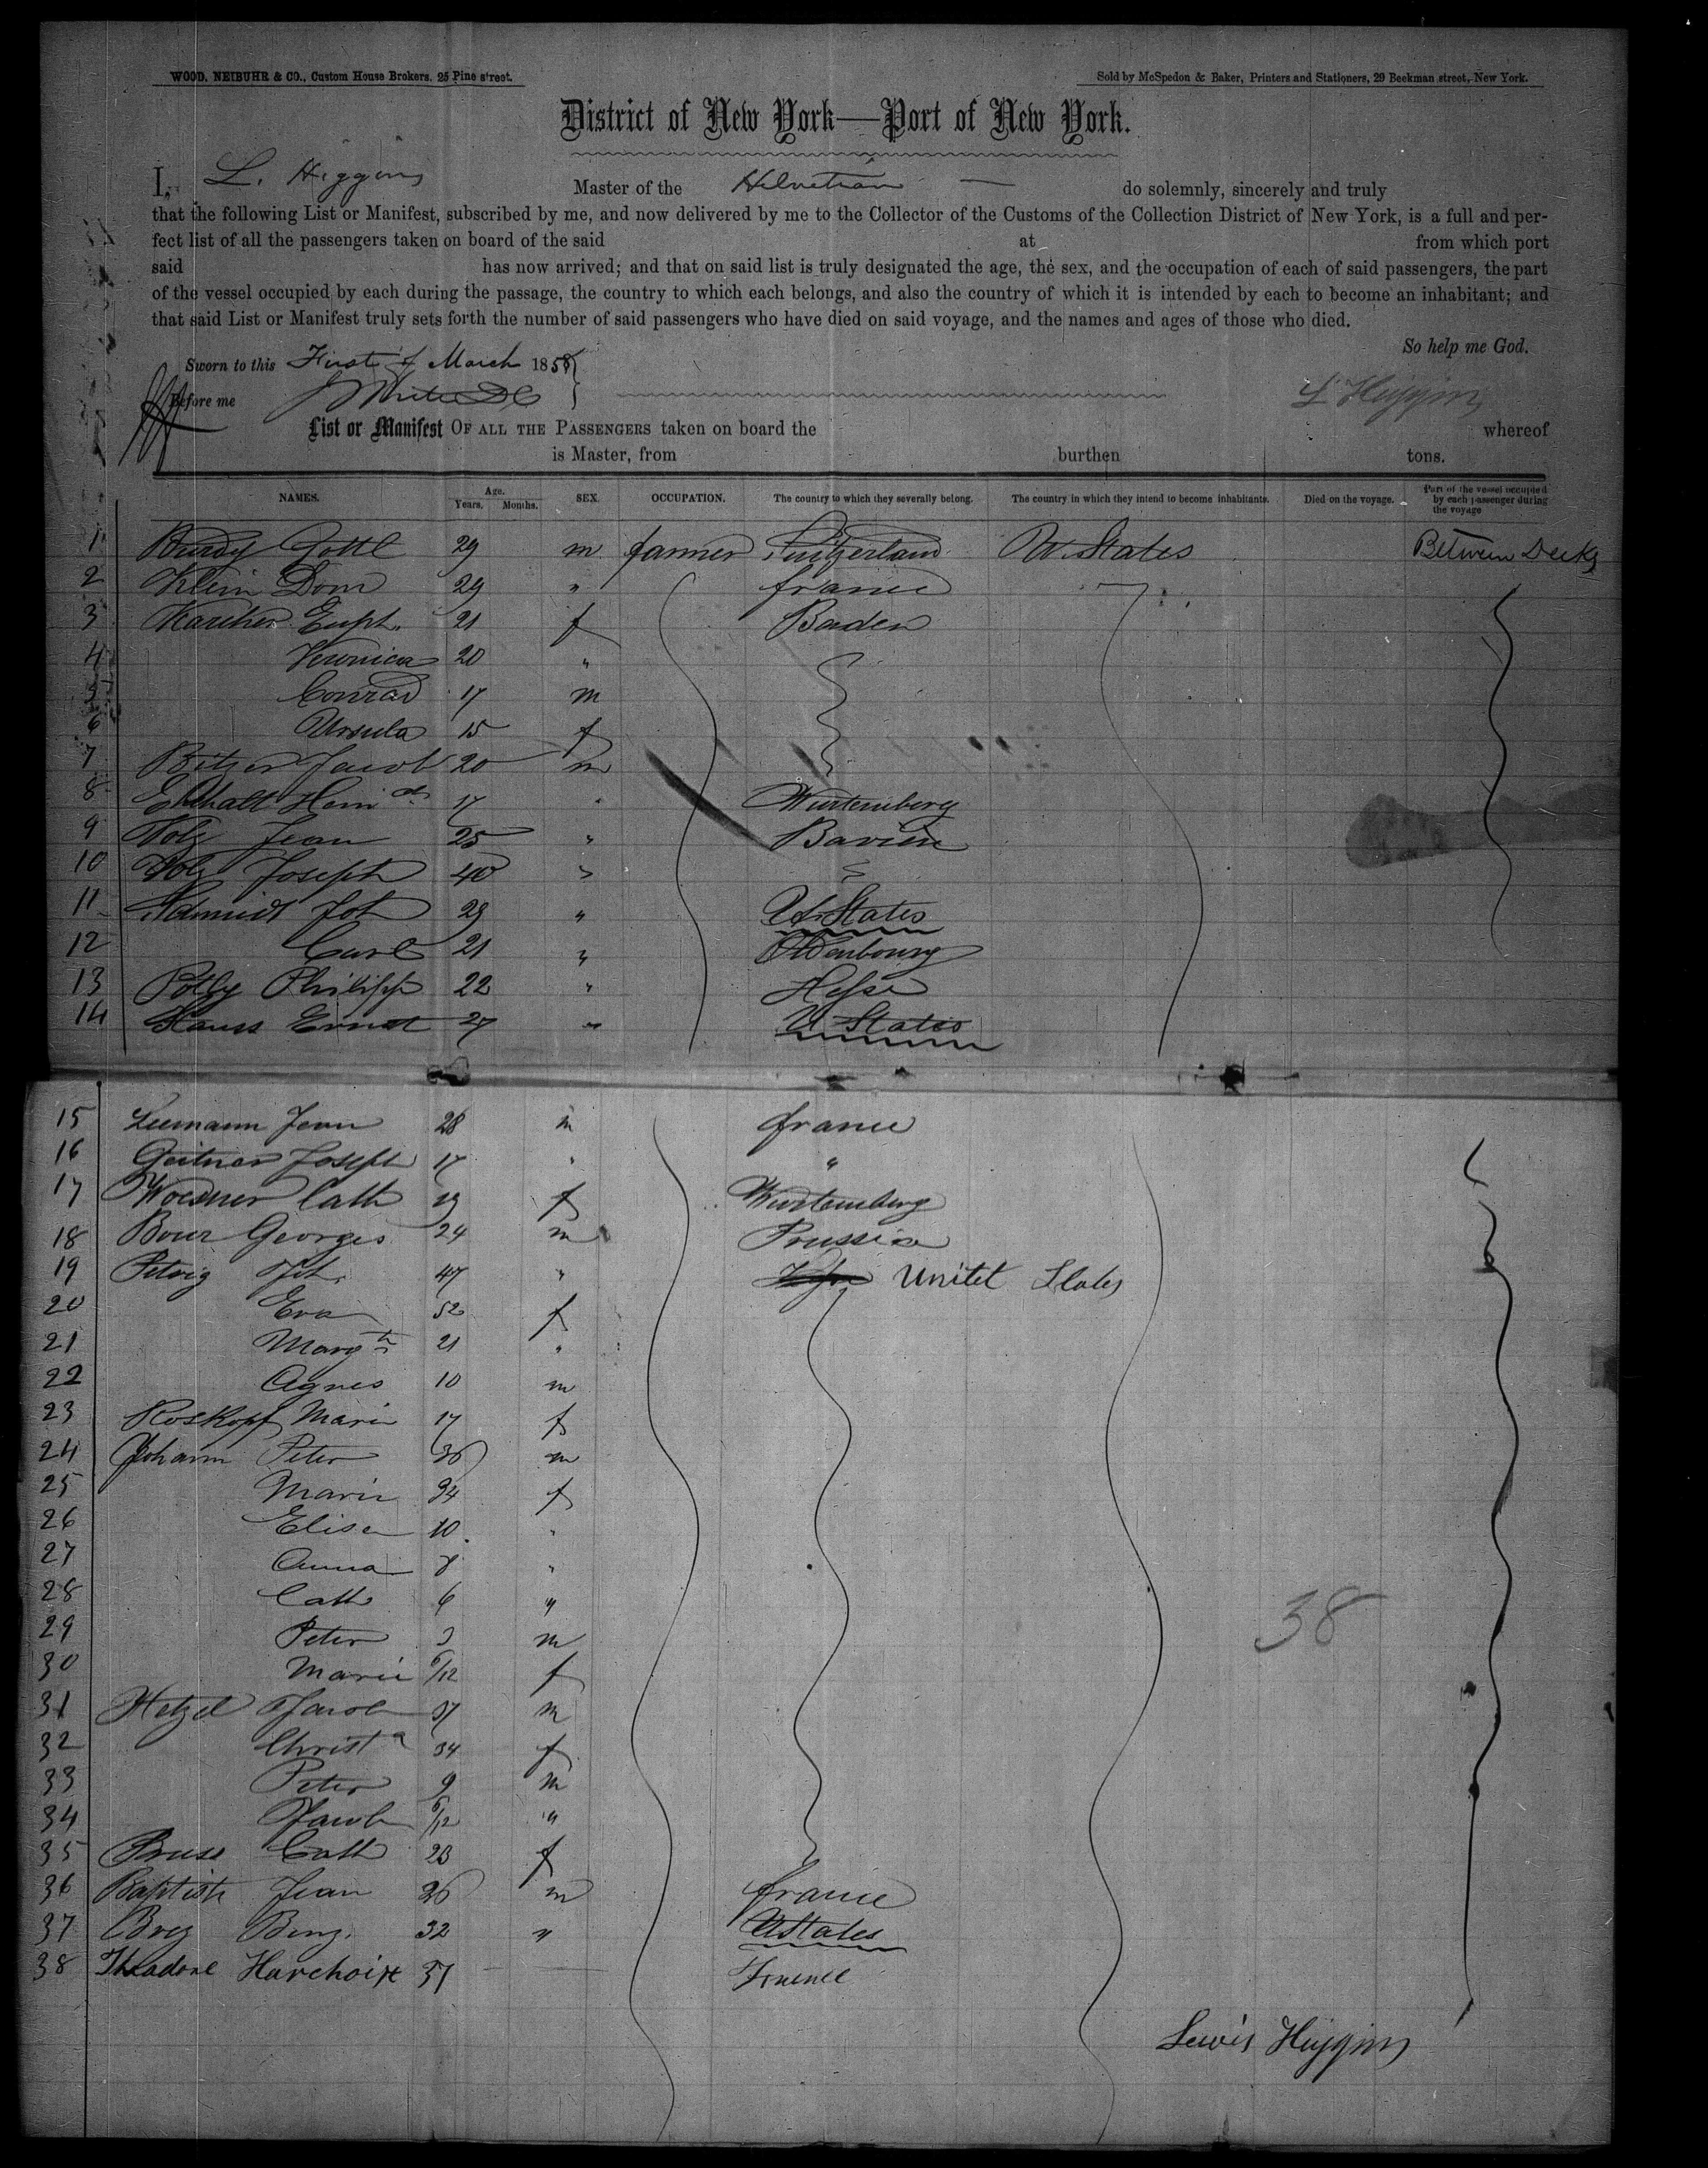 WOOD, NEIBUHR & CO., Custom House Brokers, 25 Pine street.
Sold by McSpedon & Baker, Printers and Stationers, 29 Beekman street, New York.
District of New York—Port of New York.
I, L. Higgins Master of the Helvetian — do solemnly, sincerely and truly
that the following List or Manifest, subscribed by me, and now delivered by me to the Collector of the Customs of the Collection District of New York, is a full and per-
fect list of all the passengers taken on board of the said at from which port
said has now arrived; and that on said list is truly designated the age, the sex, and the occupation of each of said passengers, the part
of the vessel occupied by each during the passage, the country to which each belongs, and also the country of which it is intended by each to become an inhabitant; and
that said List or Manifest truly sets forth the number of said passengers who have died on said voyage, and the names and ages of those who died.
So help me God.
Sworn to this First of March 1858
Before me L Higgins
List or Manifest OF ALL THE PASSENGERS taken on board the whereof
is Master, from burthen tons.
NAMES. Age. Years. Months. SEX. OCCUPATION. The country to which they severally belong. The country in which they intend to become inhabitants. Died on the voyage. Part of the vessel occupied by each passenger during the voyage
1 Gottl 29 m farmer Switzerland U. States Between Decks
2 Klein Dom 29 " france
3 Karcher Euph. 21 f Baden
4 Veronica 20 "
5 Conrad 17 m
6 Ursula 15 f
7 Bitzer Jacob 20 m
8 17 " Wurtemberg
9 Volz Jean 25 " Bavière
10 Volz Joseph 40 "
11 Schmidt Joh 29 " U. States
12 Carl 21 " Oldenbourg
13 Philipp 22 " Hesse
14 Ernst 27 " U States
15 Leemann Jean 28 m france
16 Geitner Joseph 17 " "
17 Woesner Cath f Wurtemberg
18 Bour Georges 24 m Prussia
19 Petrig Joh. 47 " Unitet States
20 Eva 52 f
21 Margth 21 "
22 Agnes 10 m
23 Roskopf Marie 17 f
24 Johann Peter 36 m
25 Marie 34 f
26 Elise 10 "
27 Anna 8 "
28 Cath 6 "
29 Peter 3 m
30 Marie 6/12 f
31 Hetzel Jacob 37 m
32 Christa 34 f
33 Peter 9 m
34 Jacob 6/12 "
35 Cath 23 f
36 Baptiste Jean 26 m france
37 Benj. 32 " U States
38 Theadore Harchoix 37 France
38
Lewis Higgins